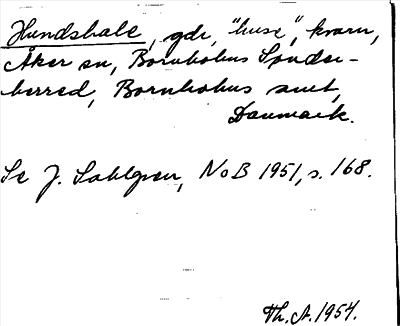 Hundshale, gde, "huse", kvarn,
Åker sn, Bornholms Sönder-
herred, Bornholms amt,
Danmark.
Se J. Sahlgren, NoB 1951, s. 168.
Th. A. 1954.